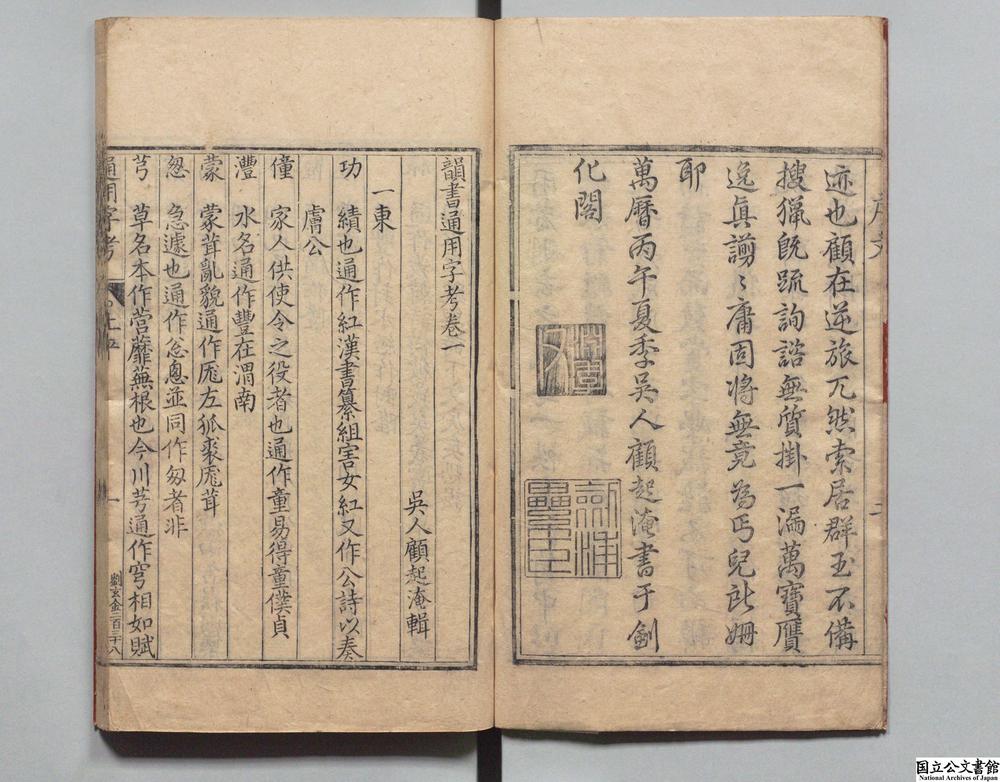 迹也顧在逆旅兀然索居群玉不備
搜獵旣疏詢諮無質掛一漏萬寶贋
逸真謭〻庸固將無竟為丐兒訿姍
耶
萬曆丙午夏季吳人顧起淹書于劍
化閣
韻書通用字考卷一
吳人顧起淹輯
一東
功 績也通作紅漢書纂組害女紅又作公詩以奏
膚公
僮 家人供使令之役者也通作童易得童僕貞
灃 水名通作豐在渭南
蒙 蒙茸亂貌通作厖左狐裘厖茸
怱 急遽也通作忩悤並同作匆者非
芎 草名本作营蘼蕪根也今川芎通作穹相如賦
通用字考
一
劉玄金二百三十八
国立公文書館
National Archives of Japan